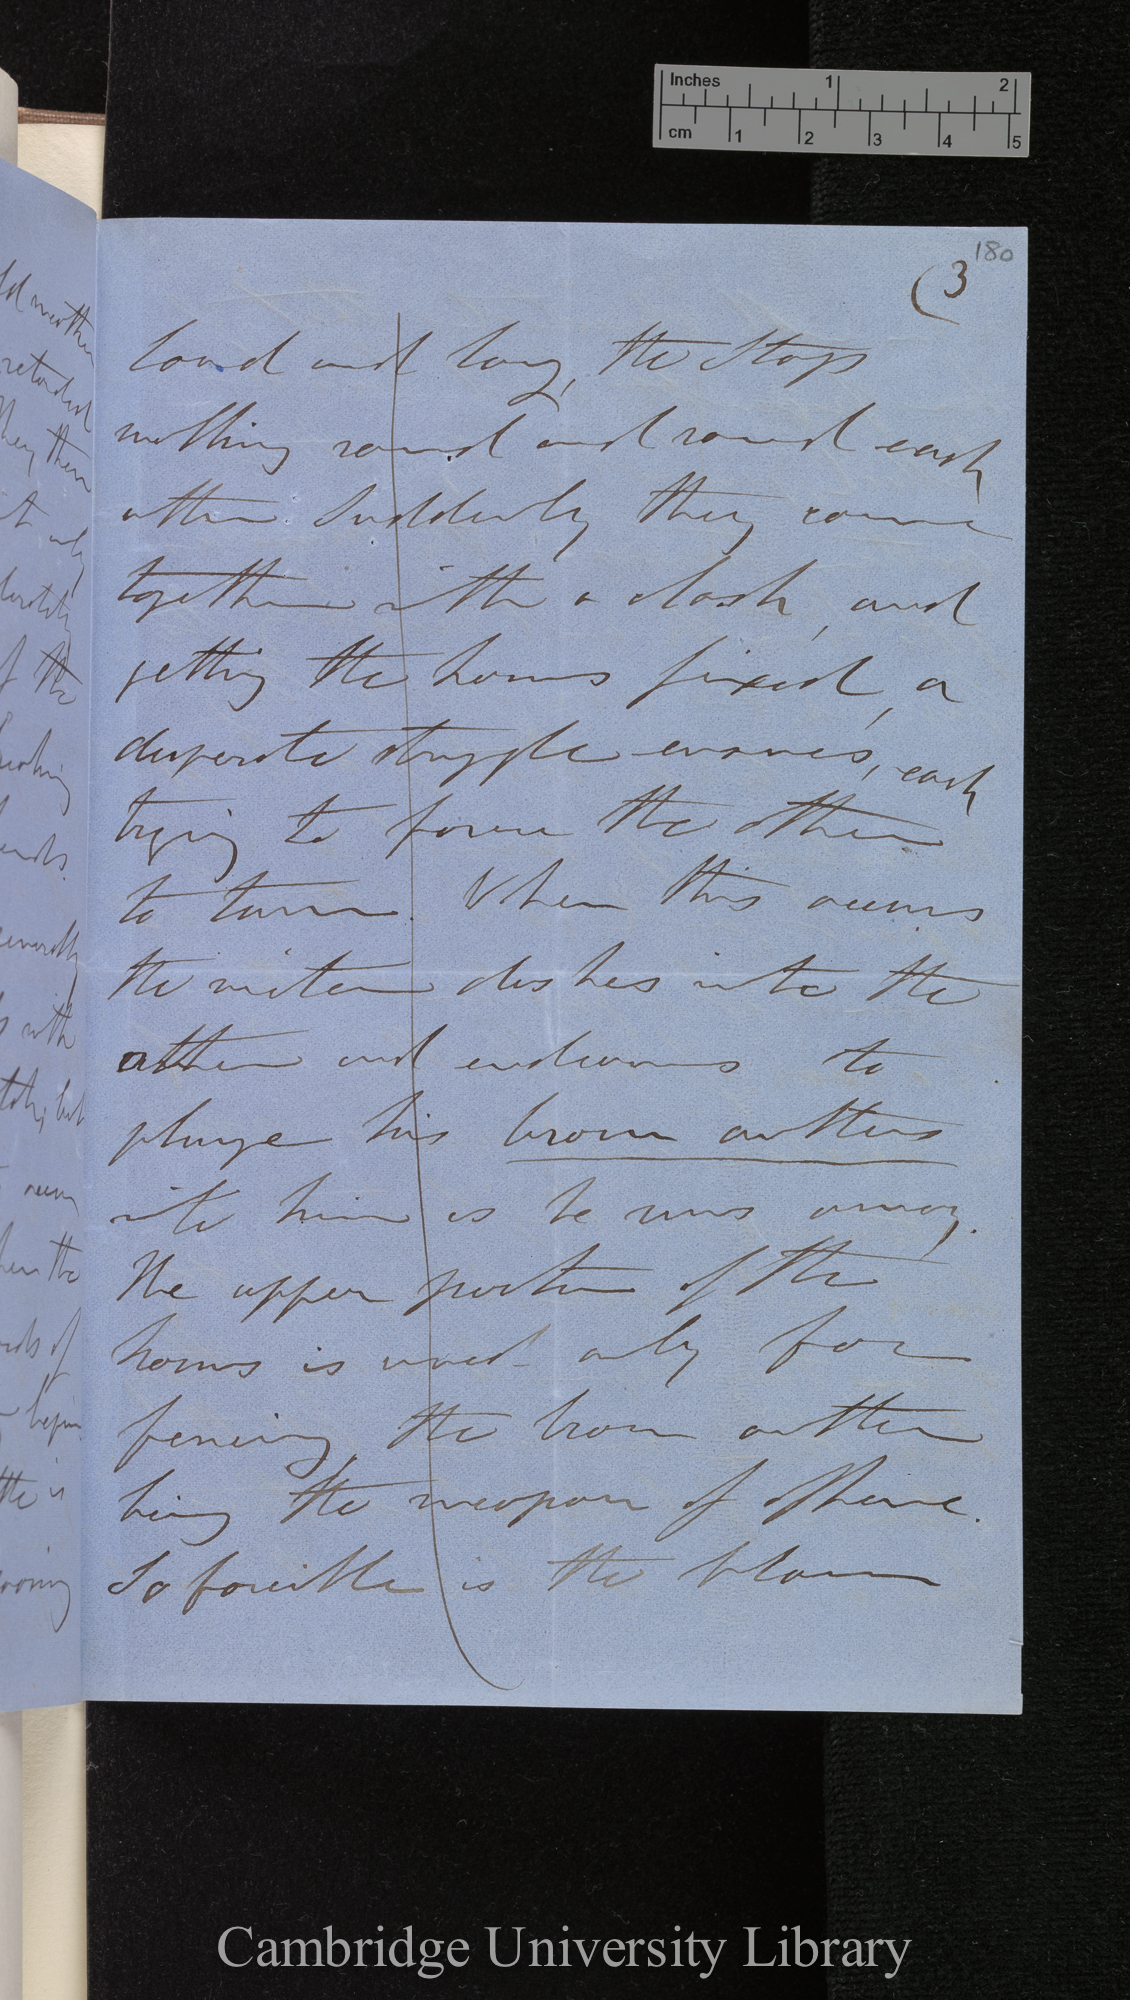 Inches 1 2
cm 1 2 3 4 5
180
(3
loud and long, the Stags
walking round and round each
other Suddenly they come
together with a clash, and
getting the horns fixed, a
desperate struggle ensues, each
trying to force the other
to turn. When this occurs
the victor dashes into the
other and endeavours to
plunge his brow antlers
into him as he runs away.
The upper portion of the
horns is used only for
fencing, the brow antler
being the weapon of offence.
So forcible is the blow
retarded
they then
it only
of the
with
but
occur
when the
of
begin
is
Cambridge University Library